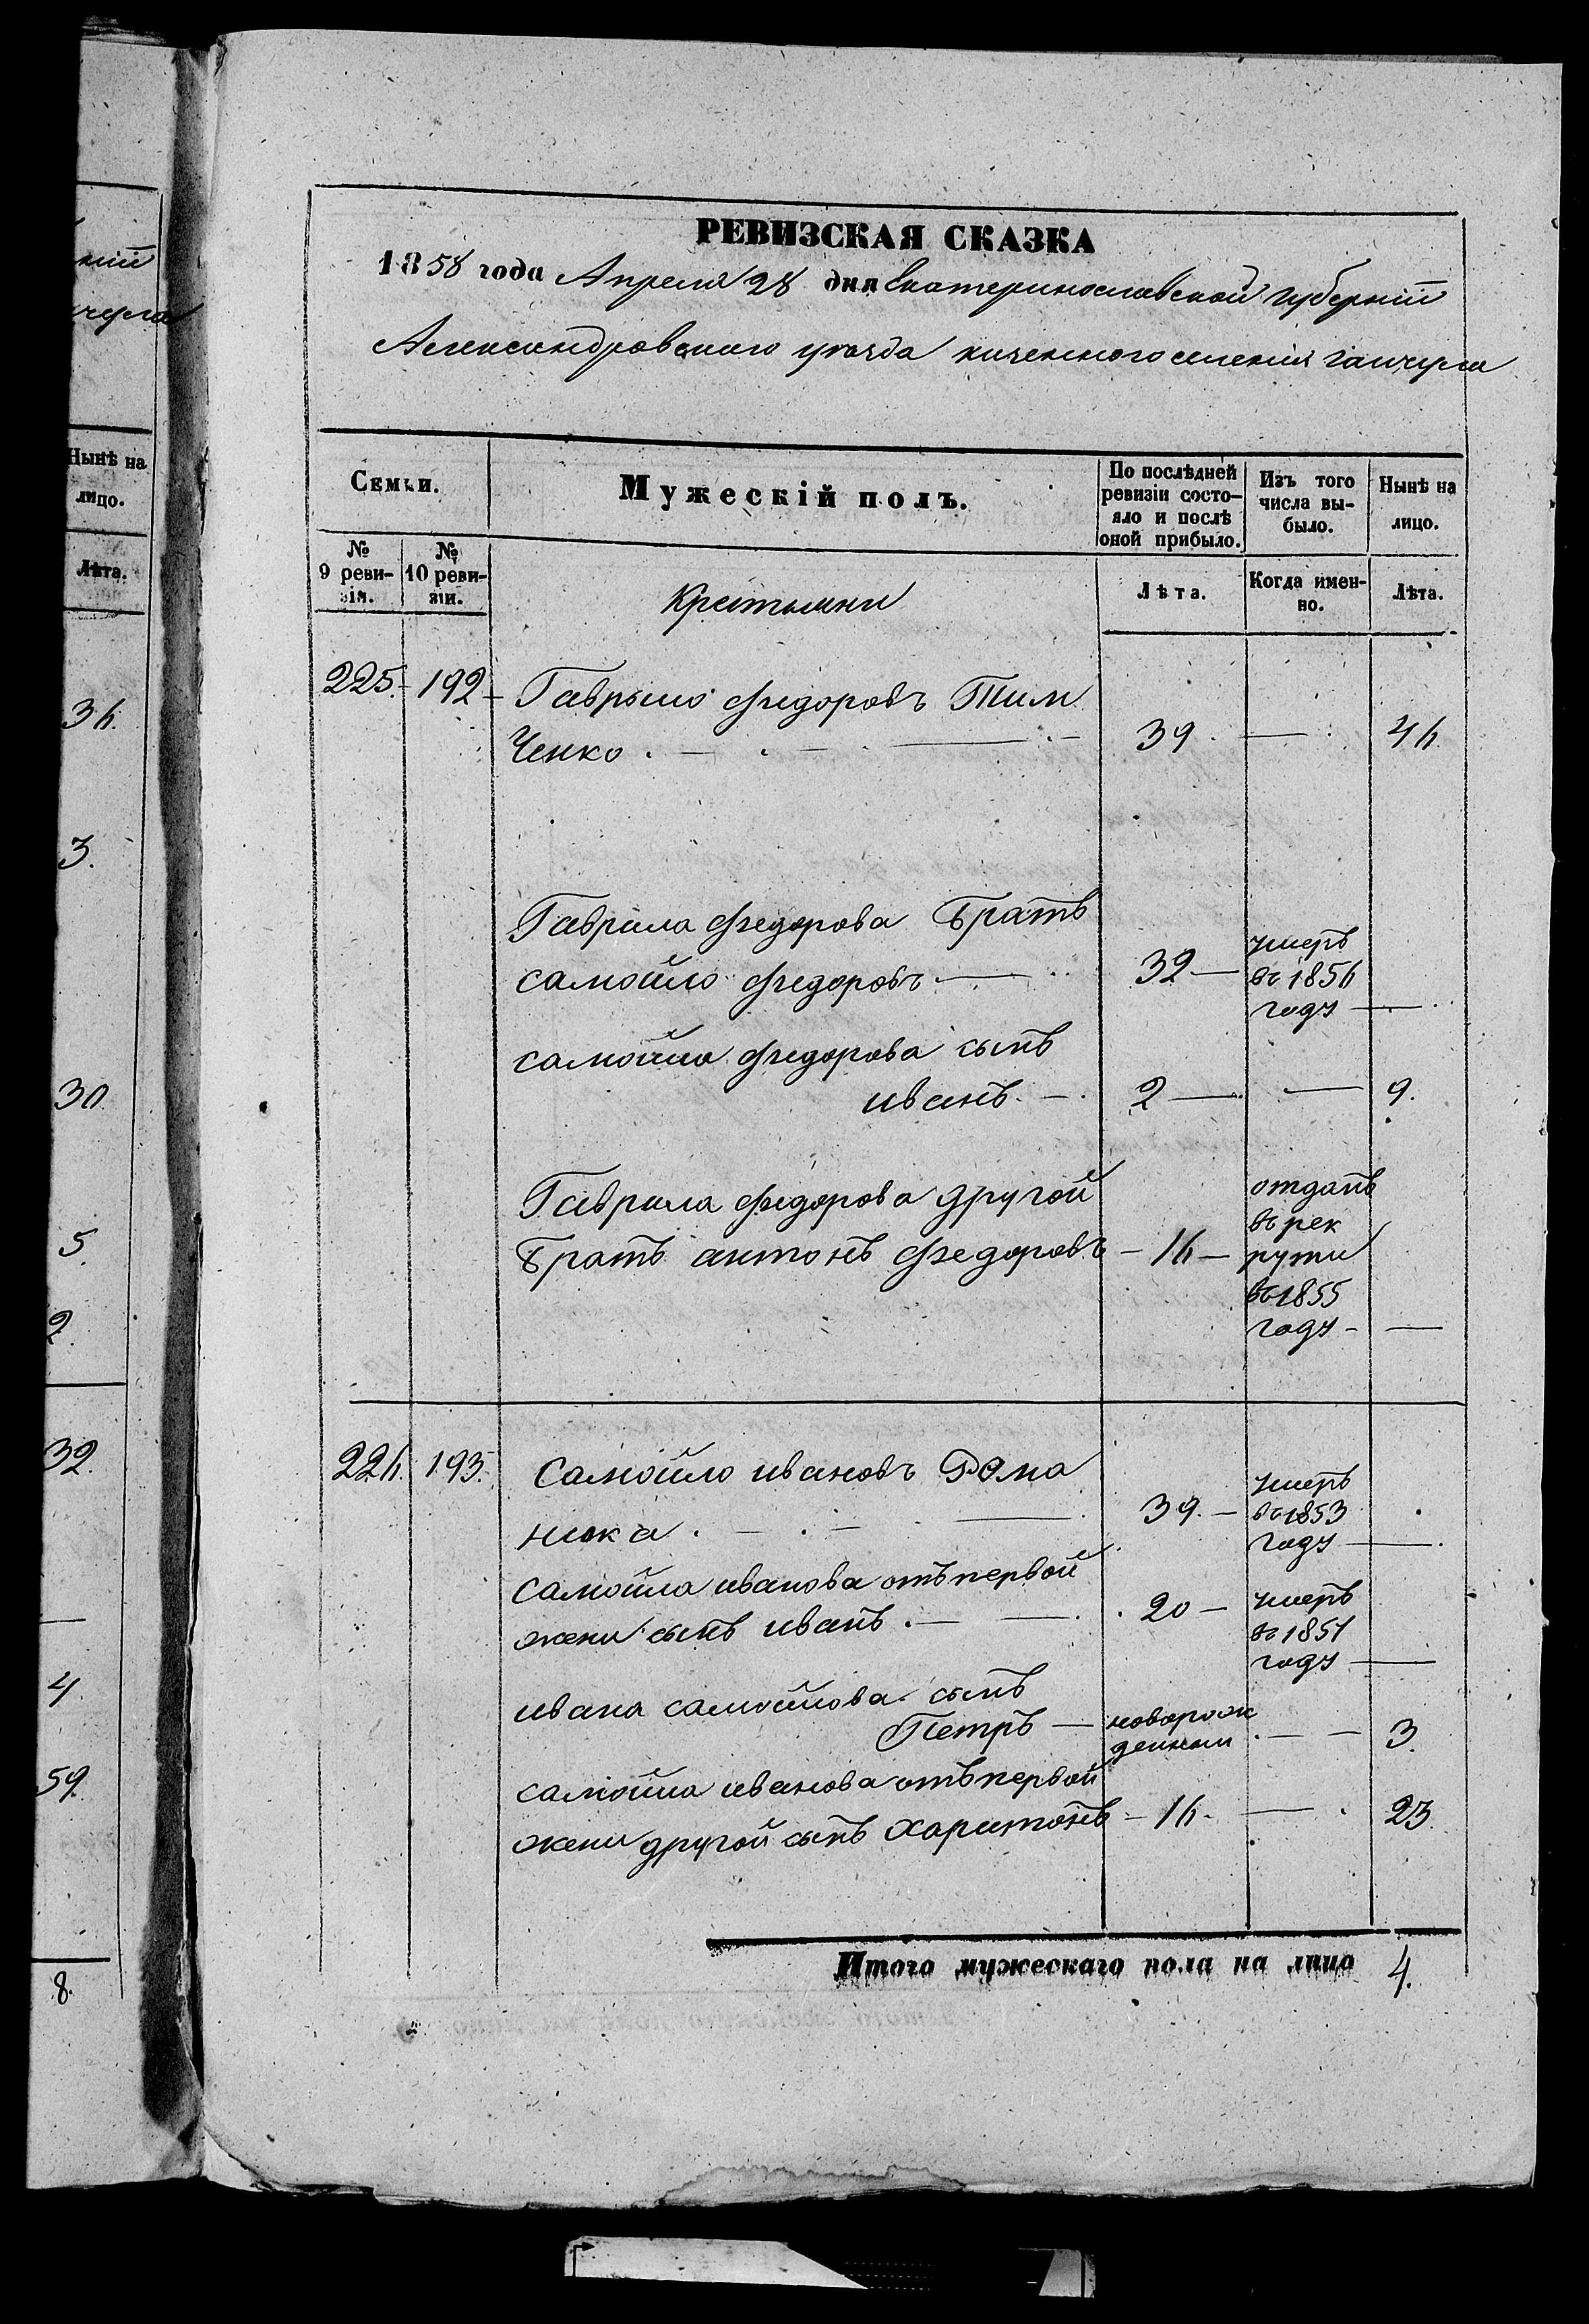 кій
чула
Нынѣ на
лицо.
Лѣта.
36.
3.
30
5.
2.
32.
4.
59.
8.
РЕВИЗСКАЯ СКАЗКА
1858 года Апреля 28 дня Екатеринославской губерніи
Александровскаго уезда казенного селенія Гайчула
Семьи.
Мужескій полъ.
По послѣдней
ревизіи состо-
яло и послѣ
оной прибыло.
Изъ того
числа вы-
было.
Нынѣ на
лицо.
№
9 реви-
зіи.
№
10 реви-
зіи.
Крестьяни
Лѣта.
Когда имен-
но.
Лѣта.
225. 192 Гаврыло Федоровъ Тим
Ченко 39 46
Гаврила Федорова Братъ
самойло Федоровъ 32 умеръ
въ 1856
году
самойла Федорова сынъ
иванъ 2 9.
Гаврила Федорова другой
Братъ антонъ Федоровъ 16 отданъ
въ рек
рути
въ 1855
году
226. 193. Самойло ивановъ Рома
нюка 39 умеръ
въ 1853
году
самойла иванова отъ первой
жени сынъ иванъ 20 умеръ
въ 1851
году
ивана самойлова сынъ
Петръ новорож
денныи 3.
самойла иванова отъ первой
жени другой сынъ харитонъ 16 23.
Итого мужескаго пола на лицо 4.